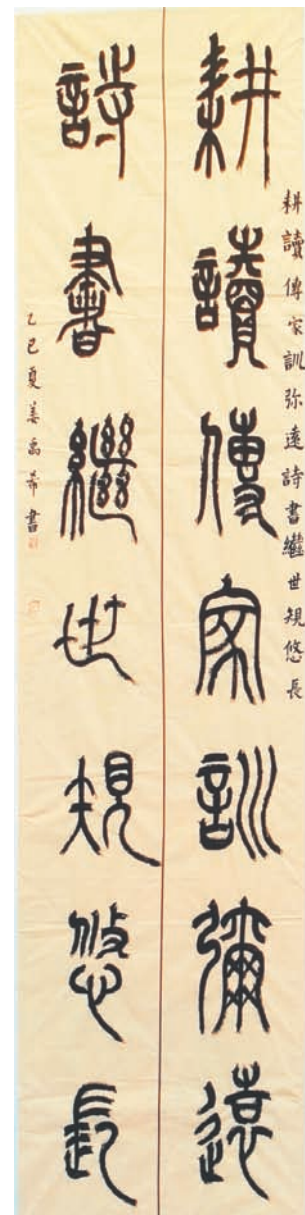 耕讀傳家訓彌遠
耕讀傳家訓弥遠詩書繼世規悠長
詩書繼世規悠長
乙巳夏姜禹希書